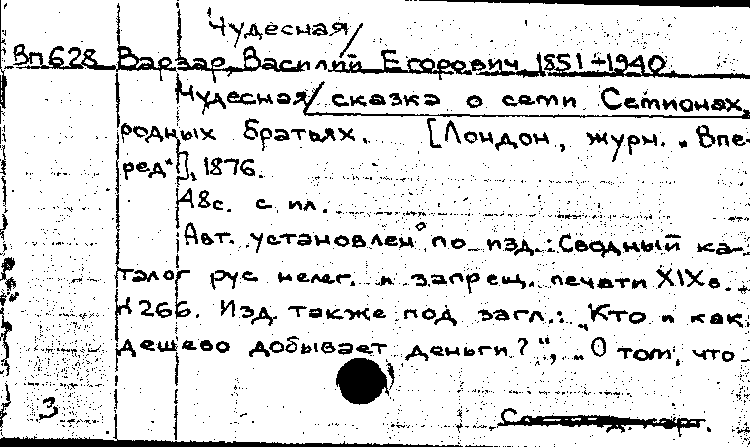 Чудесная/
Вп628 Варзар, Василий Егорович, 1851-1940.
Чудесная/ сказка о семи Семионах,
родных братьях. [Лондон, журн. „Впе-
ред"], 1876.
48с. с ил.
Авт. установлен по изд.: Сводный ка-
талог рус нелег. и запрещ. печати XIXв.
№266. Изд. также под загл.: „Кто и как
дешево добывает деньги?", „О том, что
3